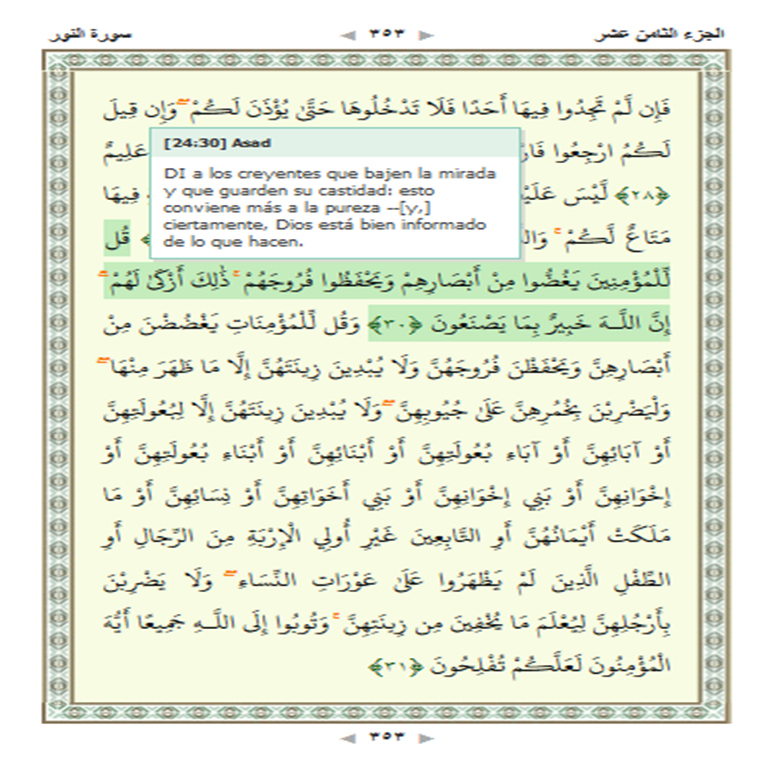 سورة النور ٣٥٣ الجزء الثامن عشر
فَإِن لَّمْ تَجِدُوا فِيهَا أَحَدًا فَلَا تَدْخُلُوهَا حَتَّىٰ يُؤْذَنَ لَكُمْ ۖ وَإِن قِيلَ
لَكُمُ ارْجِعُوا عَلِيمٌ
﴿٢٨﴾ لَّيْسَ فِيهَا
مَتَاعٌ لَّكُمْ ۚ قُل
[24:30] Asad
DI a los creyentes que bajen la mirada
y que guarden su castidad: esto
conviene más a la pureza --[y,]
ciertamente, Dios está bien informado
de lo que hacen.
لِّلْمُؤْمِنِينَ يَغُضُّوا مِنْ أَبْصَارِهِمْ وَيَحْفَظُوا فُرُوجَهُمْ ۚ ذَٰلِكَ أَزْكَىٰ لَهُمْ ۗ
إِنَّ اللَّـهَ خَبِيرٌ بِمَا يَصْنَعُونَ ﴿٣٠﴾ وَقُل لِّلْمُؤْمِنَاتِ يَغْضُضْنَ مِنْ
أَبْصَارِهِنَّ وَيَحْفَظْنَ فُرُوجَهُنَّ وَلَا يُبْدِينَ زِينَتَهُنَّ إِلَّا مَا ظَهَرَ مِنْهَا ۖ
وَلْيَضْرِبْنَ بِخُمُرِهِنَّ عَلَىٰ جُيُوبِهِنَّ ۖ وَلَا يُبْدِينَ زِينَتَهُنَّ إِلَّا لِبُعُولَتِهِنَّ
أَوْ آبَائِهِنَّ أَوْ آبَاءِ بُعُولَتِهِنَّ أَوْ أَبْنَائِهِنَّ أَوْ أَبْنَاءِ بُعُولَتِهِنَّ أَوْ
إِخْوَانِهِنَّ أَوْ بَنِي إِخْوَانِهِنَّ أَوْ بَنِي أَخَوَاتِهِنَّ أَوْ نِسَائِهِنَّ أَوْ مَا
مَلَكَتْ أَيْمَانُهُنَّ أَوِ التَّابِعِينَ غَيْرِ أُولِي الْإِرْبَةِ مِنَ الرِّجَالِ أَوِ
الطِّفْلِ الَّذِينَ لَمْ يَظْهَرُوا عَلَىٰ عَوْرَاتِ النِّسَاءِ ۖ وَلَا يَضْرِبْنَ
بِأَرْجُلِهِنَّ لِيُعْلَمَ مَا يُخْفِينَ مِن زِينَتِهِنَّ ۚ وَتُوبُوا إِلَى اللَّـهِ جَمِيعًا أَيُّهَ
الْمُؤْمِنُونَ لَعَلَّكُمْ تُفْلِحُونَ ﴿٣١﴾
٣٥٣